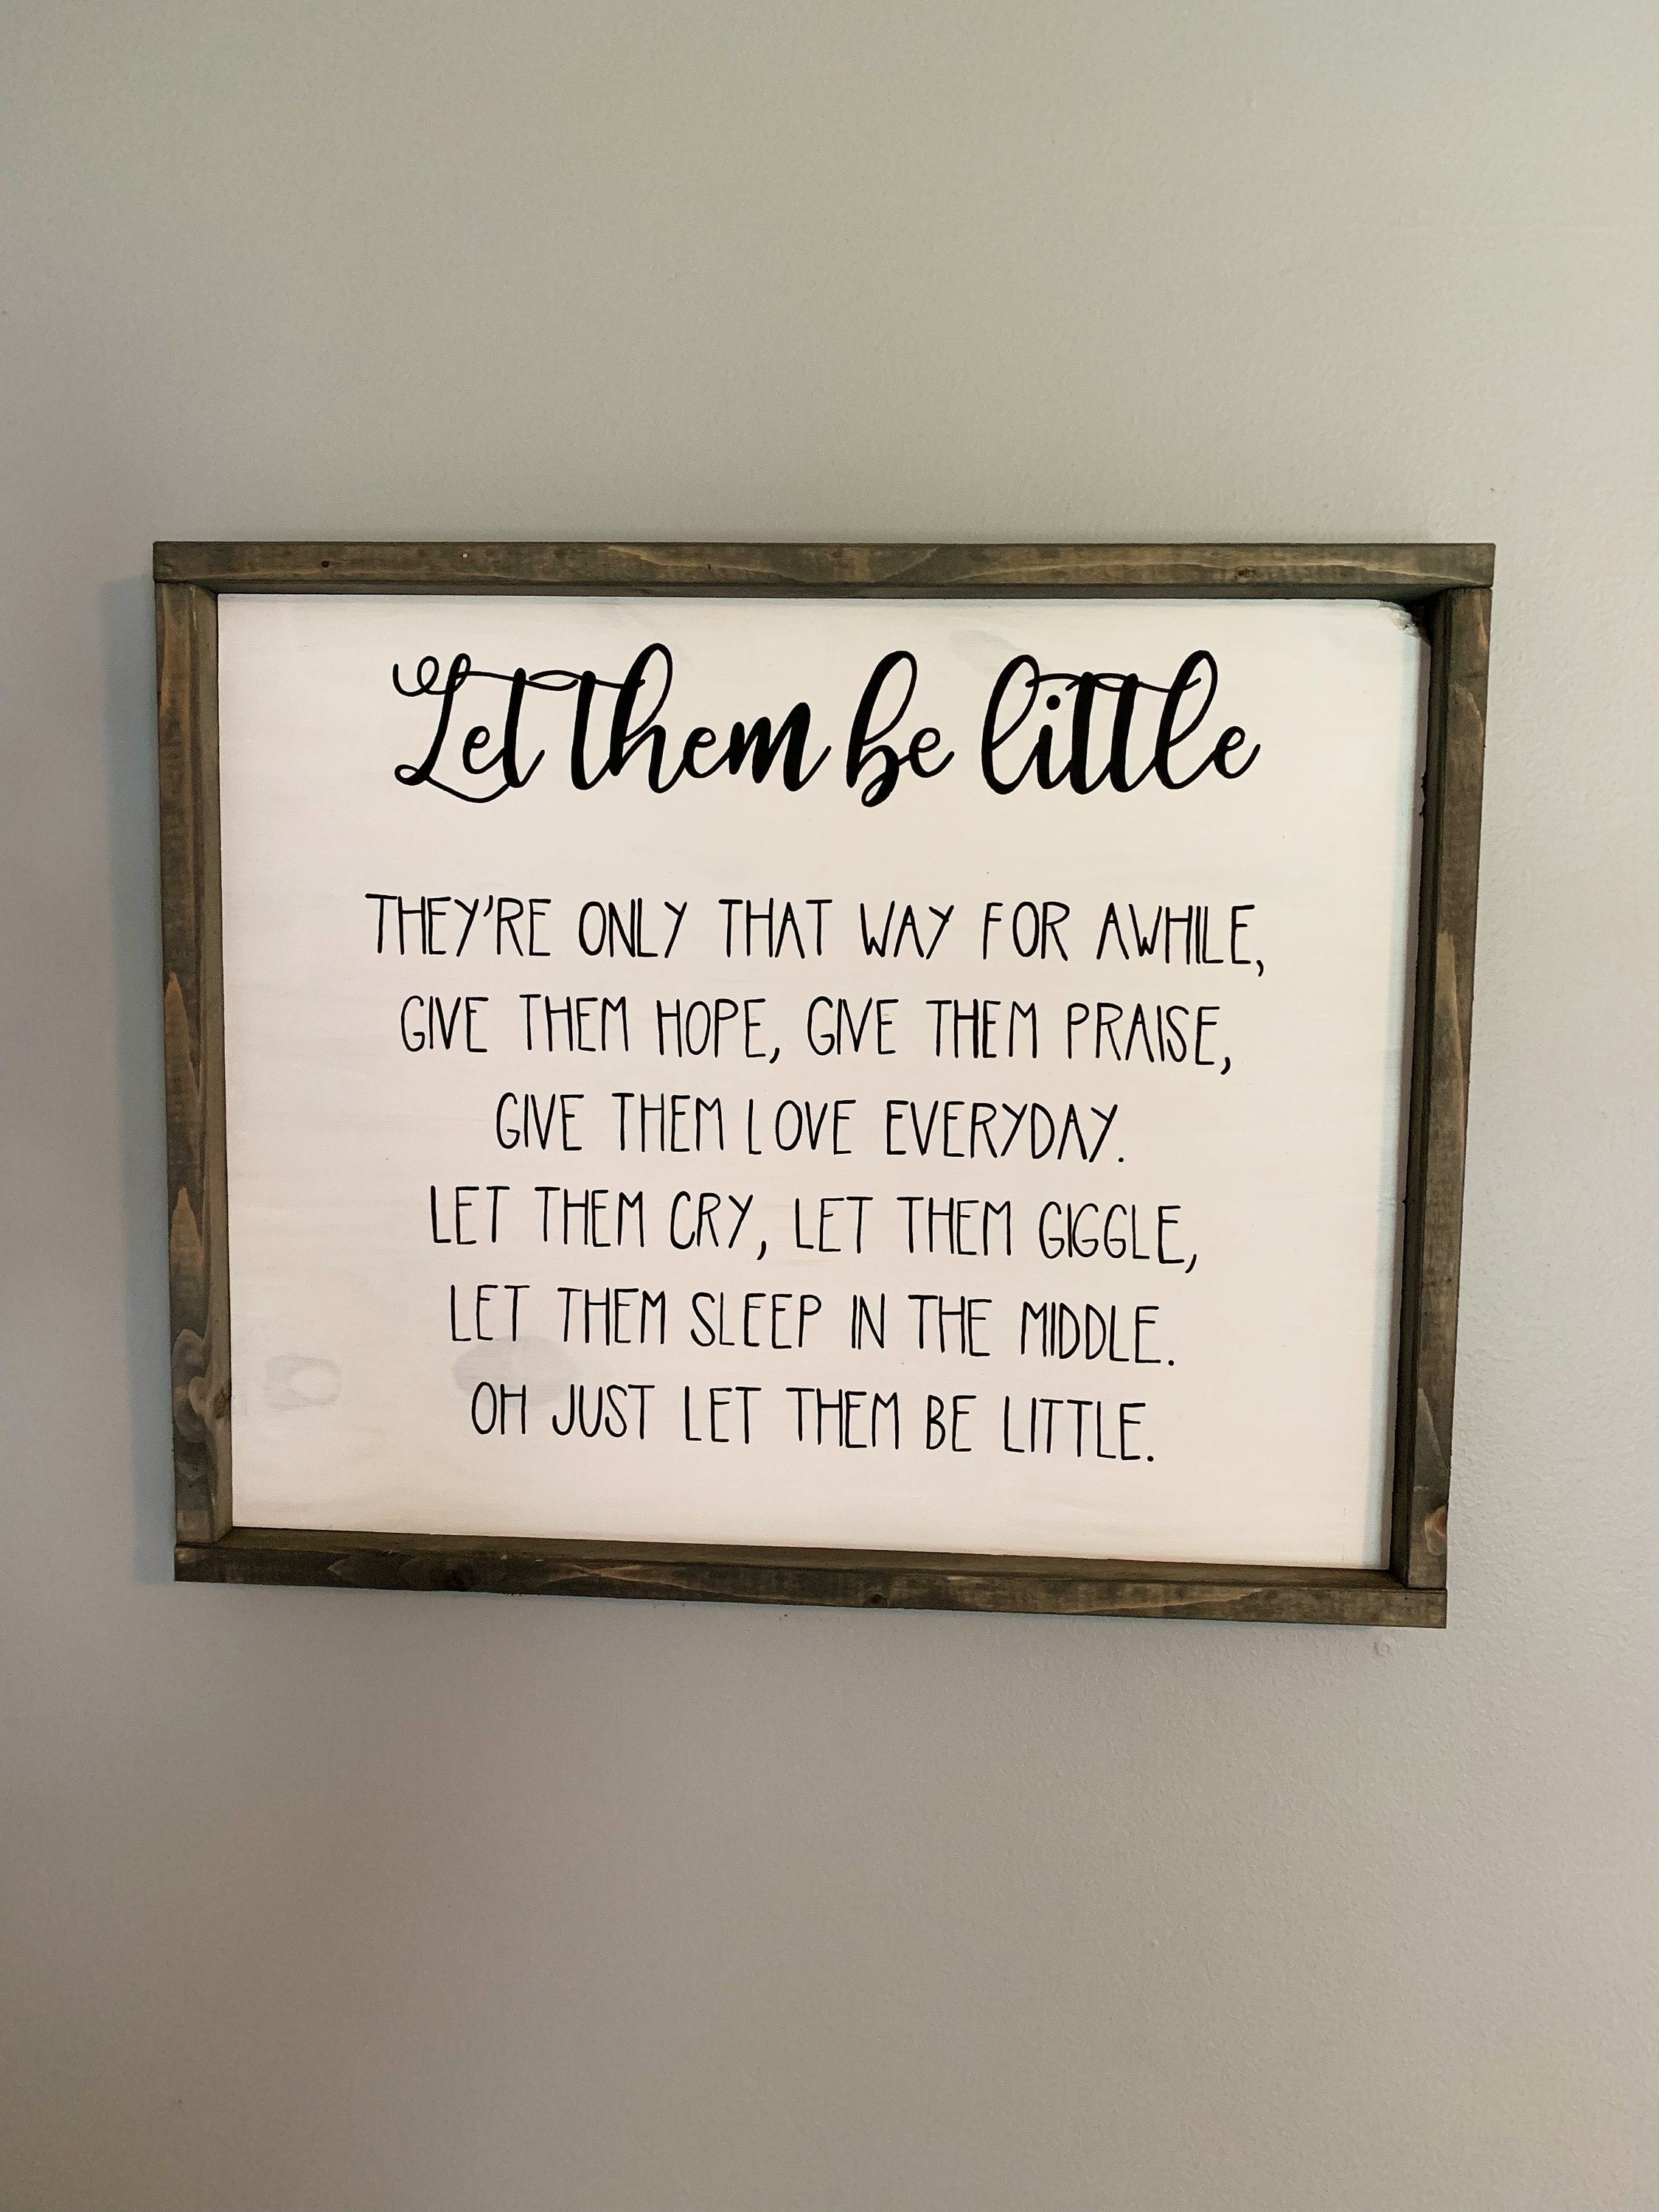 Let them be little
THEY'RE ONLY THAT WAY FOR AWHILE,
GIVE THEM HOPE, GIVE THEM PRAISE,
GIVE THEM LOVE EVERYDAY.
LET THEM CRY, LET THEM GIGGLE,
LET THEM SLEEP IN THE MIDDLE.
OH JUST LET THEM BE LITTLE.